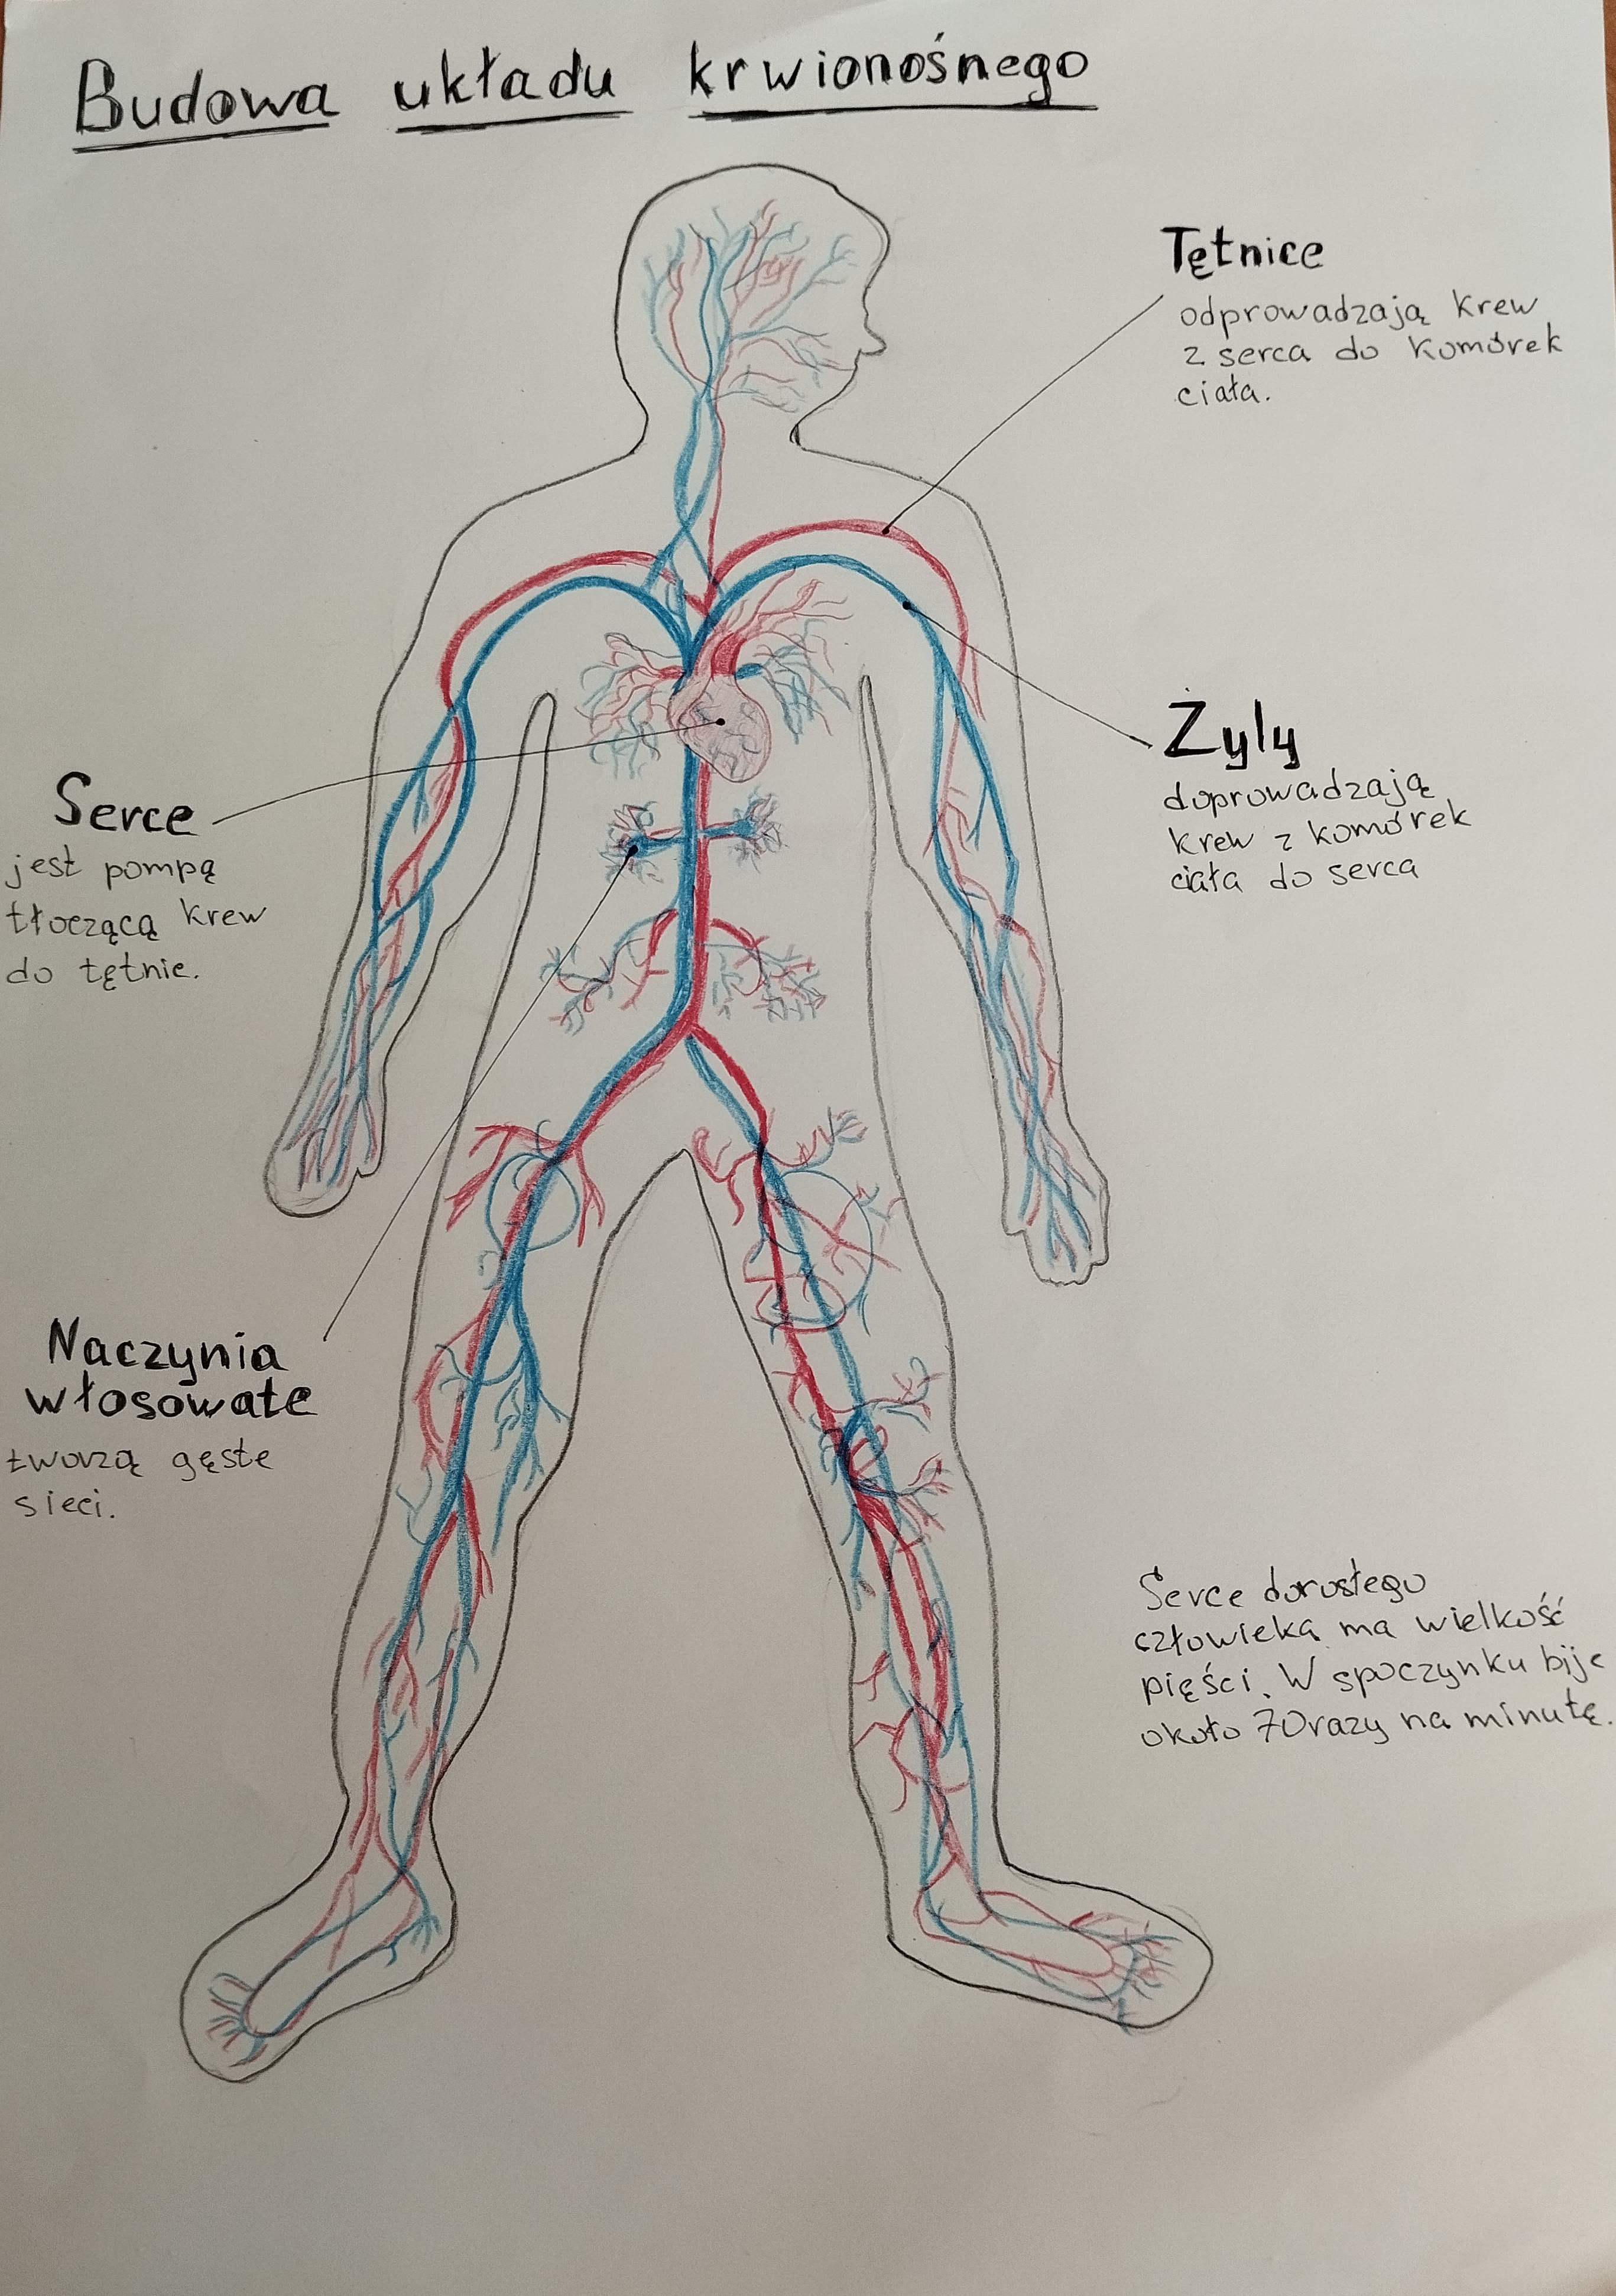 Budowa układu krwionośnego
Tętnice
odprowadzają krew
z serca do komórek
ciała.
Żyły
doprowadzają
krew z komórek
ciała do serca
Serce
jest pompą
tłoczącą krew
do tętnic.
Naczynia
włosowate
tworzą gęste
sieci.
Serce dorosłego
człowieka ma wielkość
pięści. W spoczynku bije
około 70 razy na minutę.